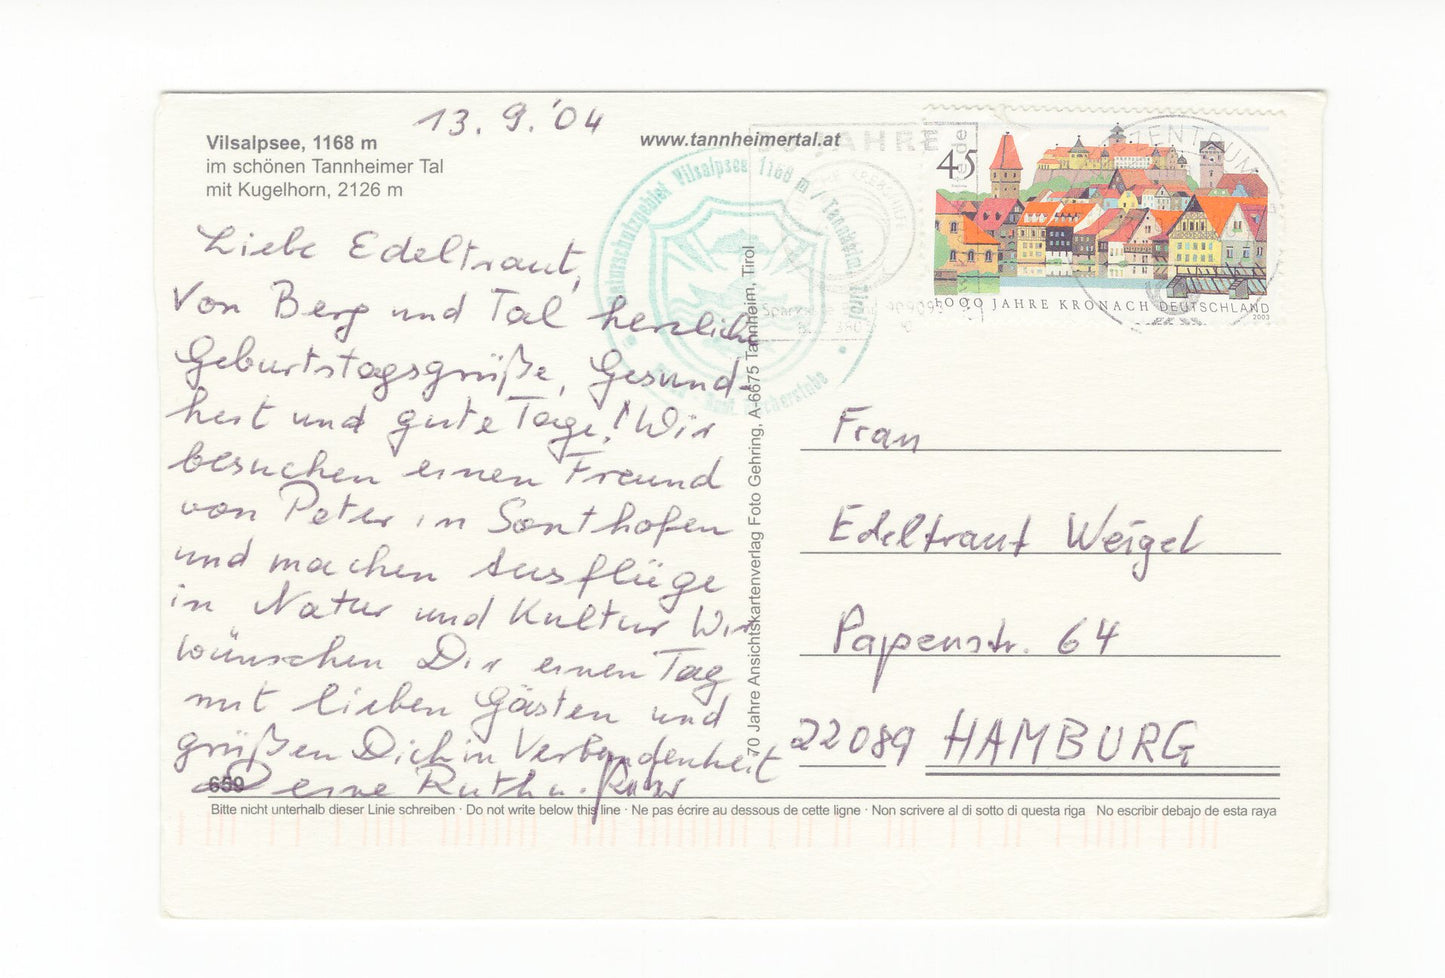 13. 9. '04
Vilsalpsee, 1168 m
im schönen Tannheimer Tal
mit Kugelhorn, 2126 m
www.tannheimertal.at
Liebe Edeltraut,
Von Berg und Tal herzliche
Geburtstagsgrüße, Gesund-
heit und gute Tage! Wir
besuchen einen Freund
von Peter in Sonthofen
und machen Ausflüge
in Natur und Kultur Wir
wünschen Dir einen Tag
mit lieben Gästen und
grüßen Dich in Verbundenheit
Deine Ruth u. Peter
659
70 Jahre Ansichtskartenverlag Foto Gehring, A-6675 Tannheim, Tirol
Naturschutzgebiet Vilsalpsee 1168 m / Tannheim Tirol
JAHRE
ZENTRUM
45
1000 JAHRE KRONACH DEUTSCHLAND
2003
Frau
Edeltraut Weigel
Papenstr. 64
22089 HAMBURG
Bitte nicht unterhalb dieser Linie schreiben · Do not write below this line · Ne pas écrire au dessous de cette ligne · Non scrivere al di sotto di questa riga No escribir debajo de esta raya